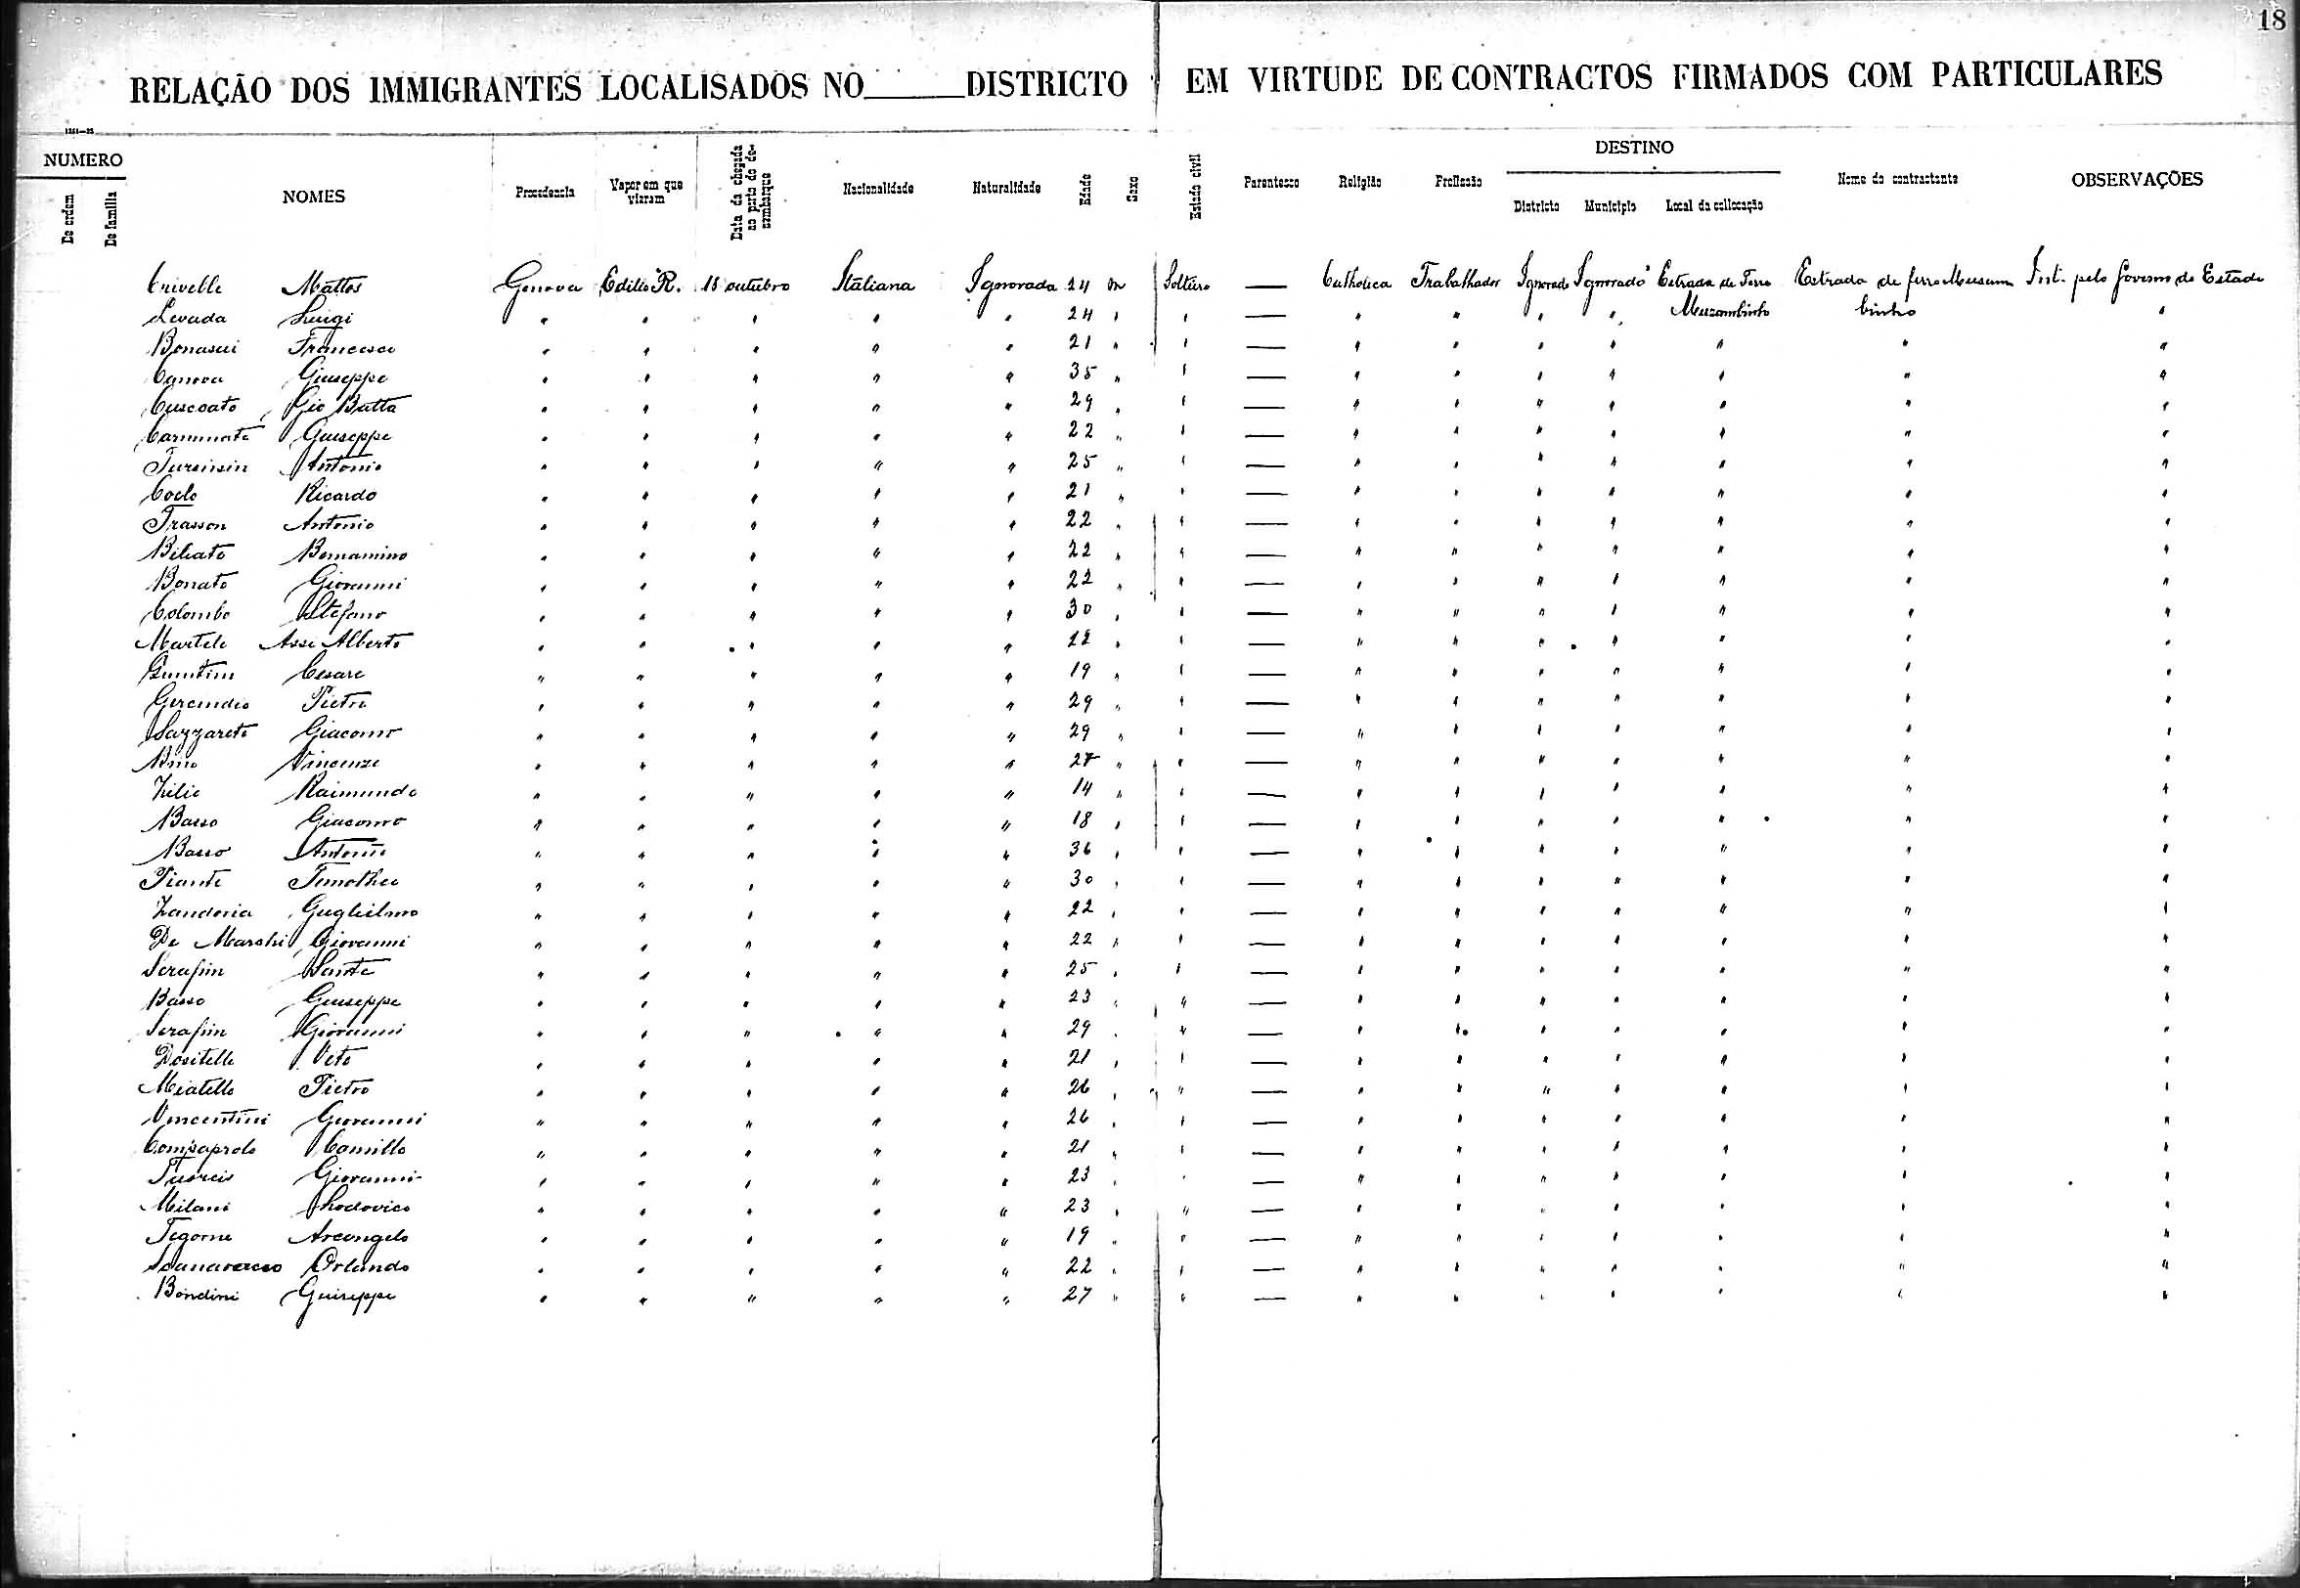 18
RELAÇÃO DOS IMMIGRANTES LOCALISADOS NO____DISTRICTO EM VIRTUDE DE CONTRACTOS FIRMADOS COM PARTICULARES
NUMERO
De ordem De familia NOMES Procedencia Vapor em que vieram Data da chegada ao porto do desembarque Nacionalidade Naturalidade Edade Sexo Estado civil Parentesco Religião Profissão DESTINO Districto Municipio Local da collocação Nome do contractante OBSERVAÇÕES
Crivelle Mattos Genova Edilio R. 18 outubro Italiana Ignorada 24 m Solteiro — Catholica Trabalhador Ignorado Ignorado Estrada de Ferro Estrada de ferro Musam Int. pelo Governo do Estado
Levada Luigi " " " " " 24 " " — " " " " Muzambinho binho "
Francesco " " " " " 21 " " — " " " " " " "
Canova Giuseppe " " " " " 35 " " — " " " " " " "
Gio Batta " " " " " 29 " " — " " " " " " "
Giuseppe " " " " " 22 " " — " " " " " " "
Antonio " " " " " 25 " " — " " " " " " "
Ricardo " " " " " 21 " " — " " " " " " "
Trasson Antonio " " " " " 22 " " — " " " " " " "
Bernamino " " " " " 22 " " — " " " " " " "
Bonato Giovanni " " " " " 22 " " — " " " " " " "
Colombo Stefano " " " " " 30 " " — " " " " " " "
Alberto " " " " " 22 " " — " " " " " " "
Cesare " " " " " 19 " " — " " " " " " "
Pietro " " " " " 29 " " — " " " " " " "
Lazzareto Giacomo " " " " " 29 " " — " " " " " " "
Vincenzo " " " " " 27 " " — " " " " " " "
Zilio Raimundo " " " " " 14 " " — " " " " " " "
Basso Giacomo " " " " " 18 " " — " " " " " " "
Basso Antonio " " " " " 36 " " — " " " " " " "
Piante Timotheo " " " " " 30 " " — " " " " " " "
Guglielmo " " " " " 22 " " — " " " " " " "
De Marchi Giovanni " " " " " 22 " " — " " " " " " "
Serafim Sante " " " " " 25 " " — " " " " " " "
Basso Giuseppe " " " " " 23 " " — " " " " " " "
Serafim Giovanni " " " " " 29 " " — " " " " " " "
Vito " " " " " 21 " " — " " " " " " "
Miatello Pietro " " " " " 26 " " — " " " " " " "
Vincentini Giovanni " " " " " 26 " " — " " " " " " "
Camillo " " " " " 21 " " — " " " " " " "
Giovanni " " " " " 23 " " — " " " " " " "
Milani Lodovico " " " " " 23 " " — " " " " " " "
Arcangelo " " " " " 19 " " — " " " " " " "
Orlando " " " " " 22 " " — " " " " " " "
Bondini Guiseppe " " " " " 27 " " — " " " " " " "